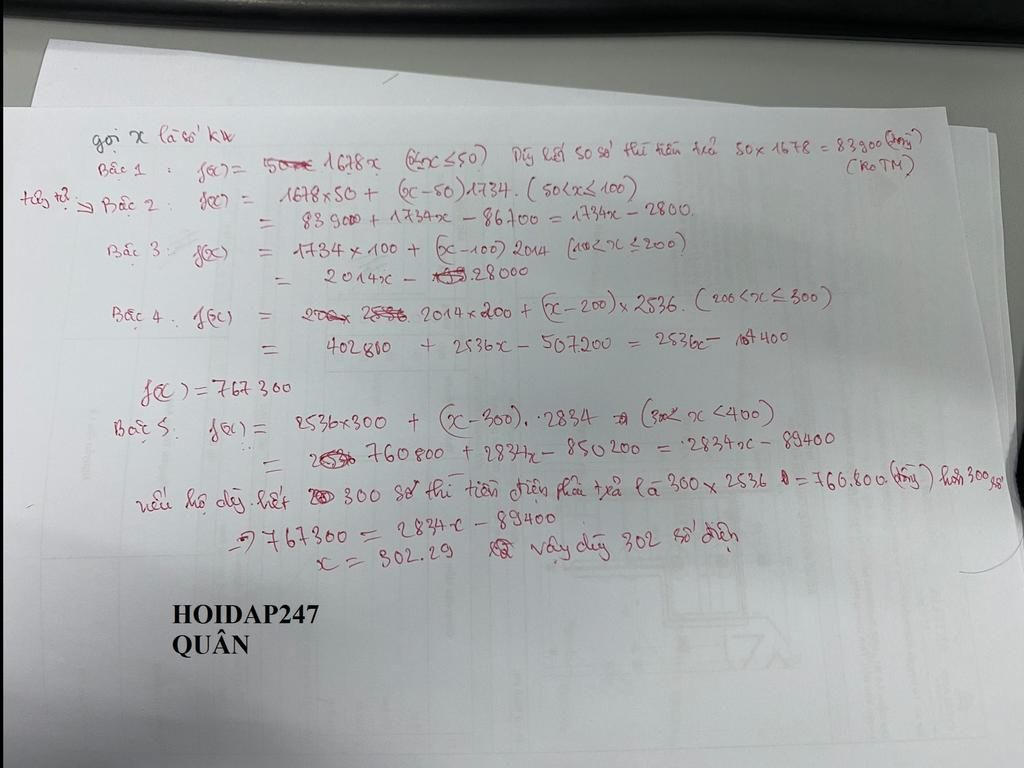 gọi x là số kW
Bậc 1 : f(x) = 1678x (0≤x≤50) Dùng hết 50 số thì tiền trả 50 x 1678 = 83900 (đồng)
(Ko TM)
tương tự → Bậc 2 : f(x) = 1678x50 + (x-50)1734. (50<x≤100)
= 83 900 + 1734x - 86700 = 1734x - 2800.
Bậc 3 : f(x) = 1734 x 100 + (x-100) 2014 (100<x≤200)
= 2014x - 28000
Bậc 4 . f(x) = 2014 x 200 + (x-200) x 2536. (200<x≤300)
= 402800 + 2536x - 507200 = 2536x - 104400
f(x) = 767 300
Bậc 5. f(x) = 2536x300 + (x-300). 2834 (300< x <400)
= 760800 + 2834x - 850200 = 2834x - 89400
nếu hộ dùng hết 300 số thì tiền điện phải trả là 300 x 2536 = 760.800 (đồng) hơn 300 số
=> 767300 = 2834x - 89400
x = 302.29 vậy dùng 302 số điện
HOIDAP247
QUÂN